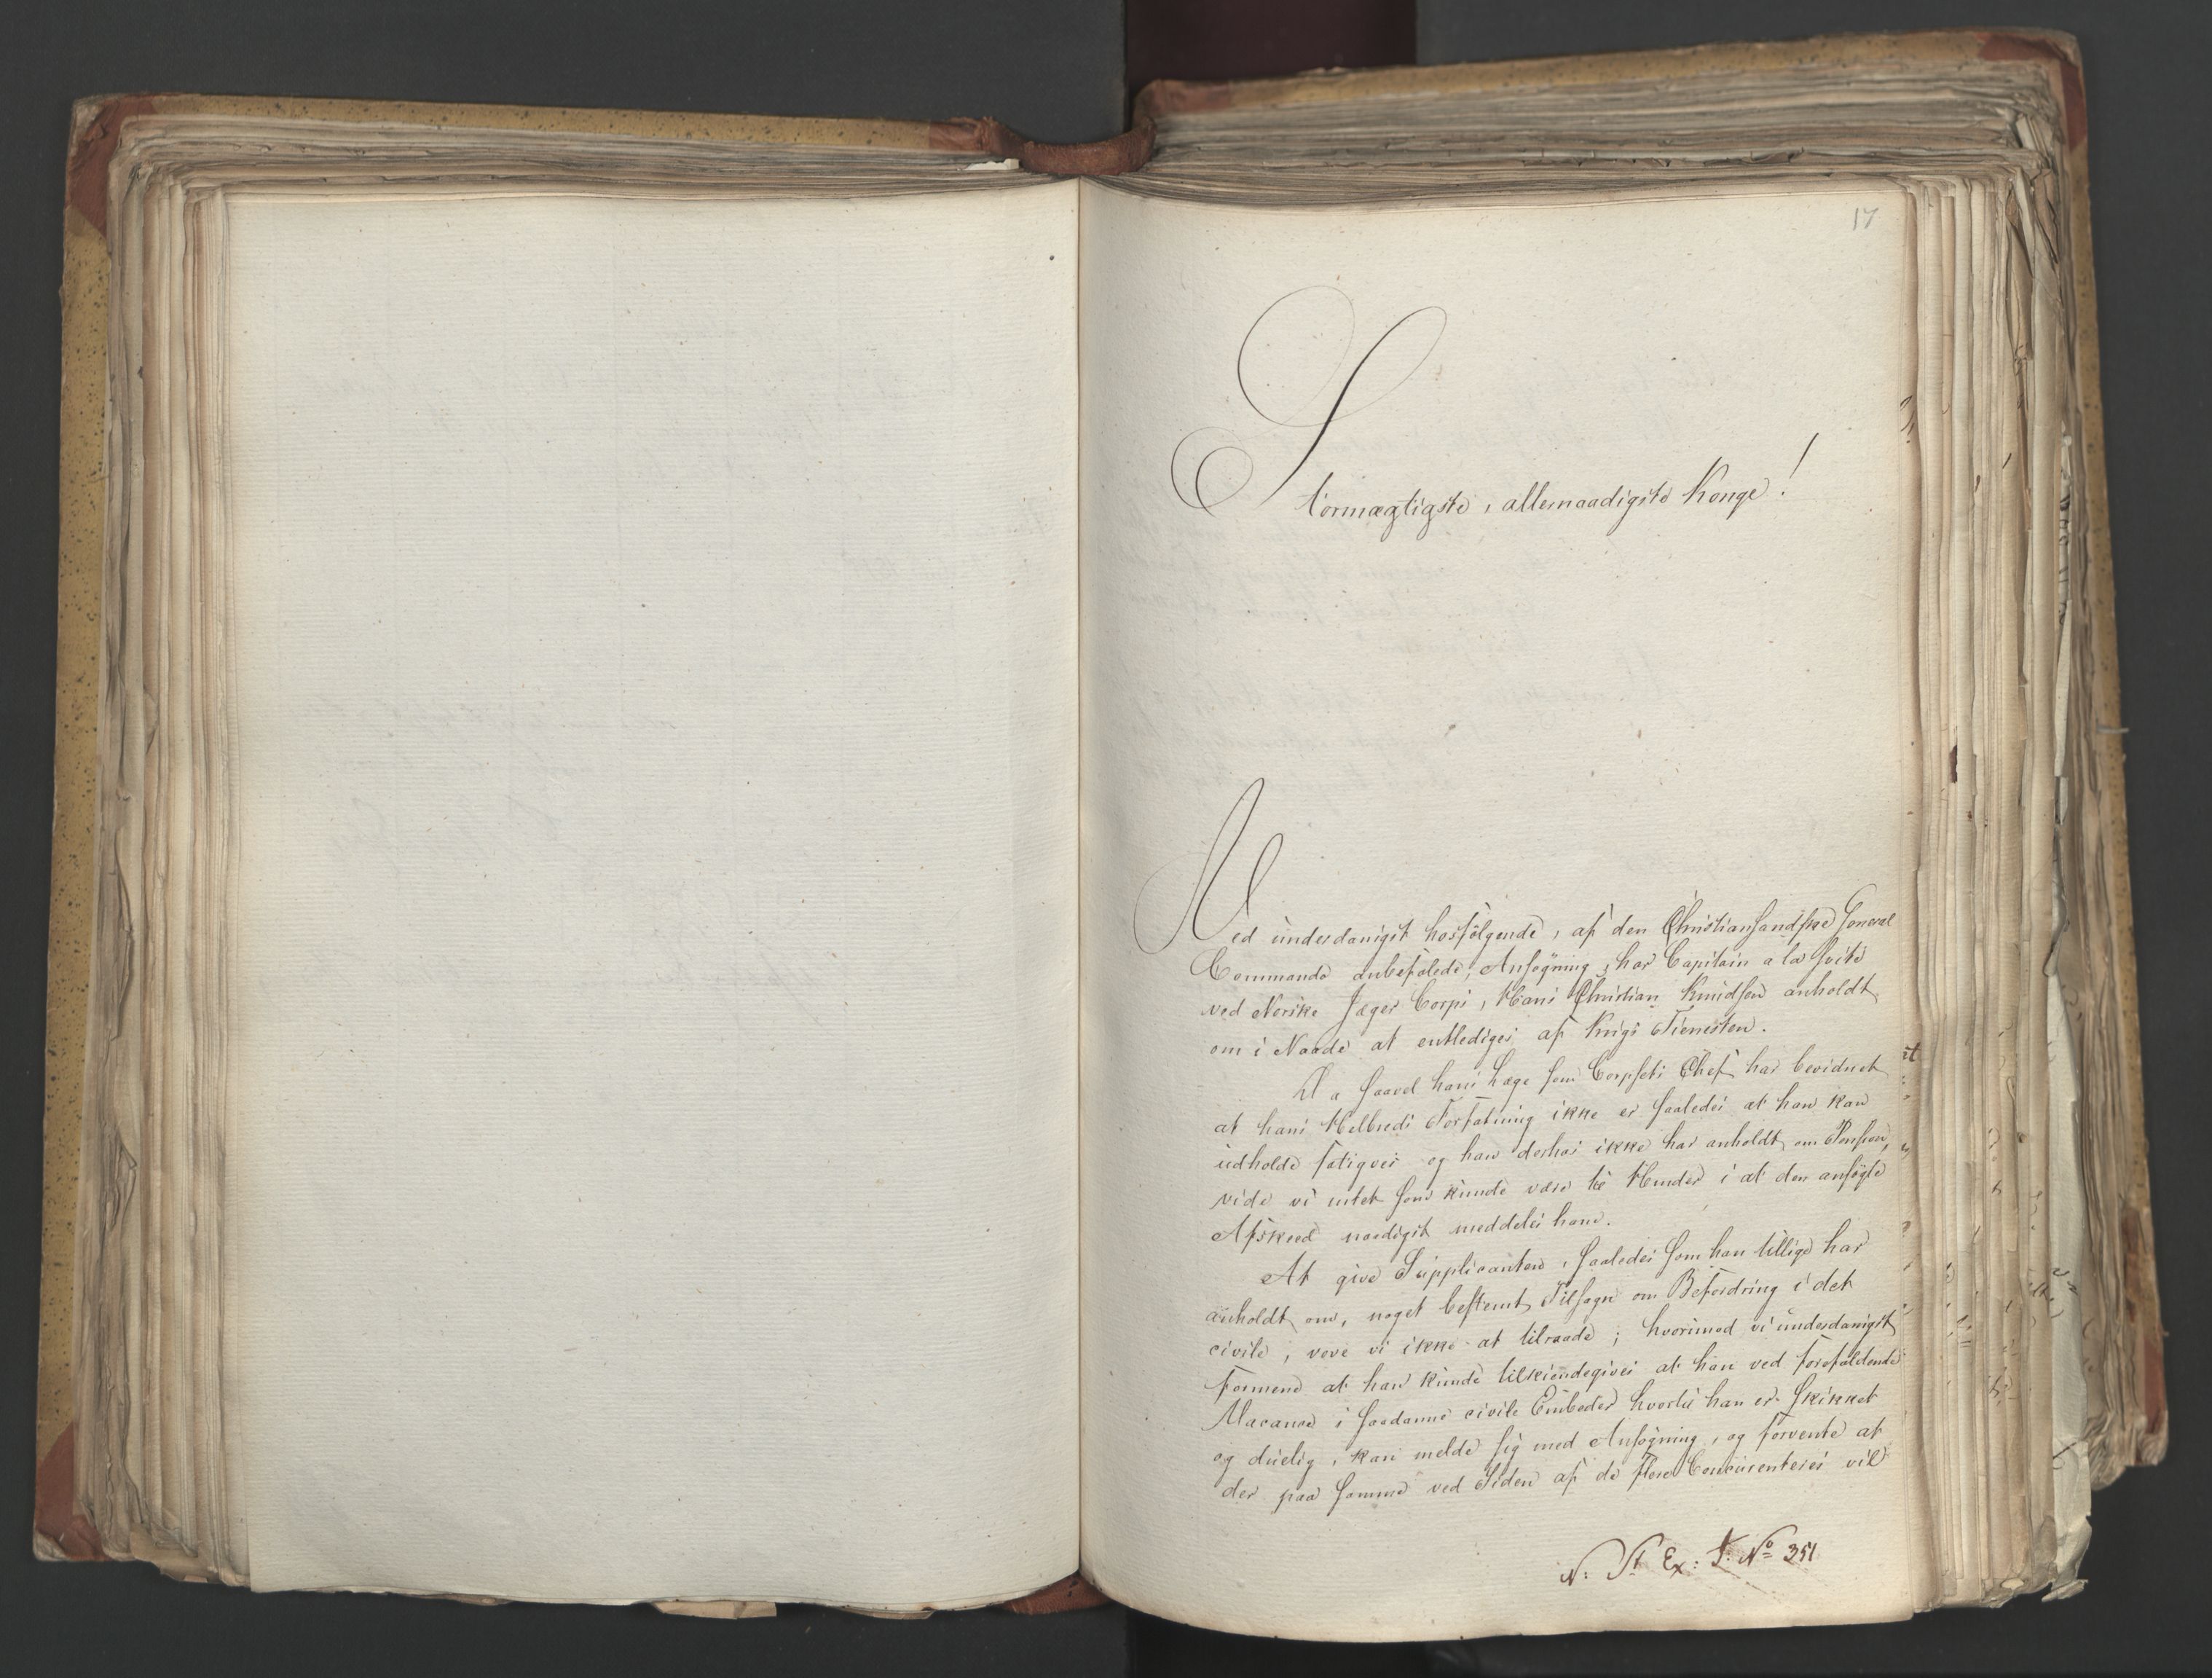 17
Stormægtigste, allernaadigste Konge!
Ved underdanigst hosfölgende, af den Christiansandske General
Commando anbefalede, Ansøgning, har Capitain a la svite
ved Norske Jæger Corps, Hans Christian Knudsen anholdt
om i Naade at entlediges af Krigs Tienesten.
Da saavel hans Læge som Corpsets Chef har bevidnet
at hans Helbreds Forfatning ikke er saaledes at han kan
udholde fatigver og han derhos ikke har anholdt om Pension,
vide vi intet som kunde være til Hinder i at den ansøgte
Afskeed naadigst meddeles ham.
At give Supplicanten, saaledes som han tillige har
anholdt om, noget bestemt Tilsagn om Befordring i det
civile, vove vi ikke at tilraade; hvorimod vi underdanigst
formene at han kunde tilkiendegives at han ved forefaldende
Vacance i saadanne civile Embeder hvortil han er skikket
og duelig, kan melde sig med Ansøgning, og forvente at
der paa samme ved Siden af de flere Concurenteres vil
N: St. Ex: J: No 351